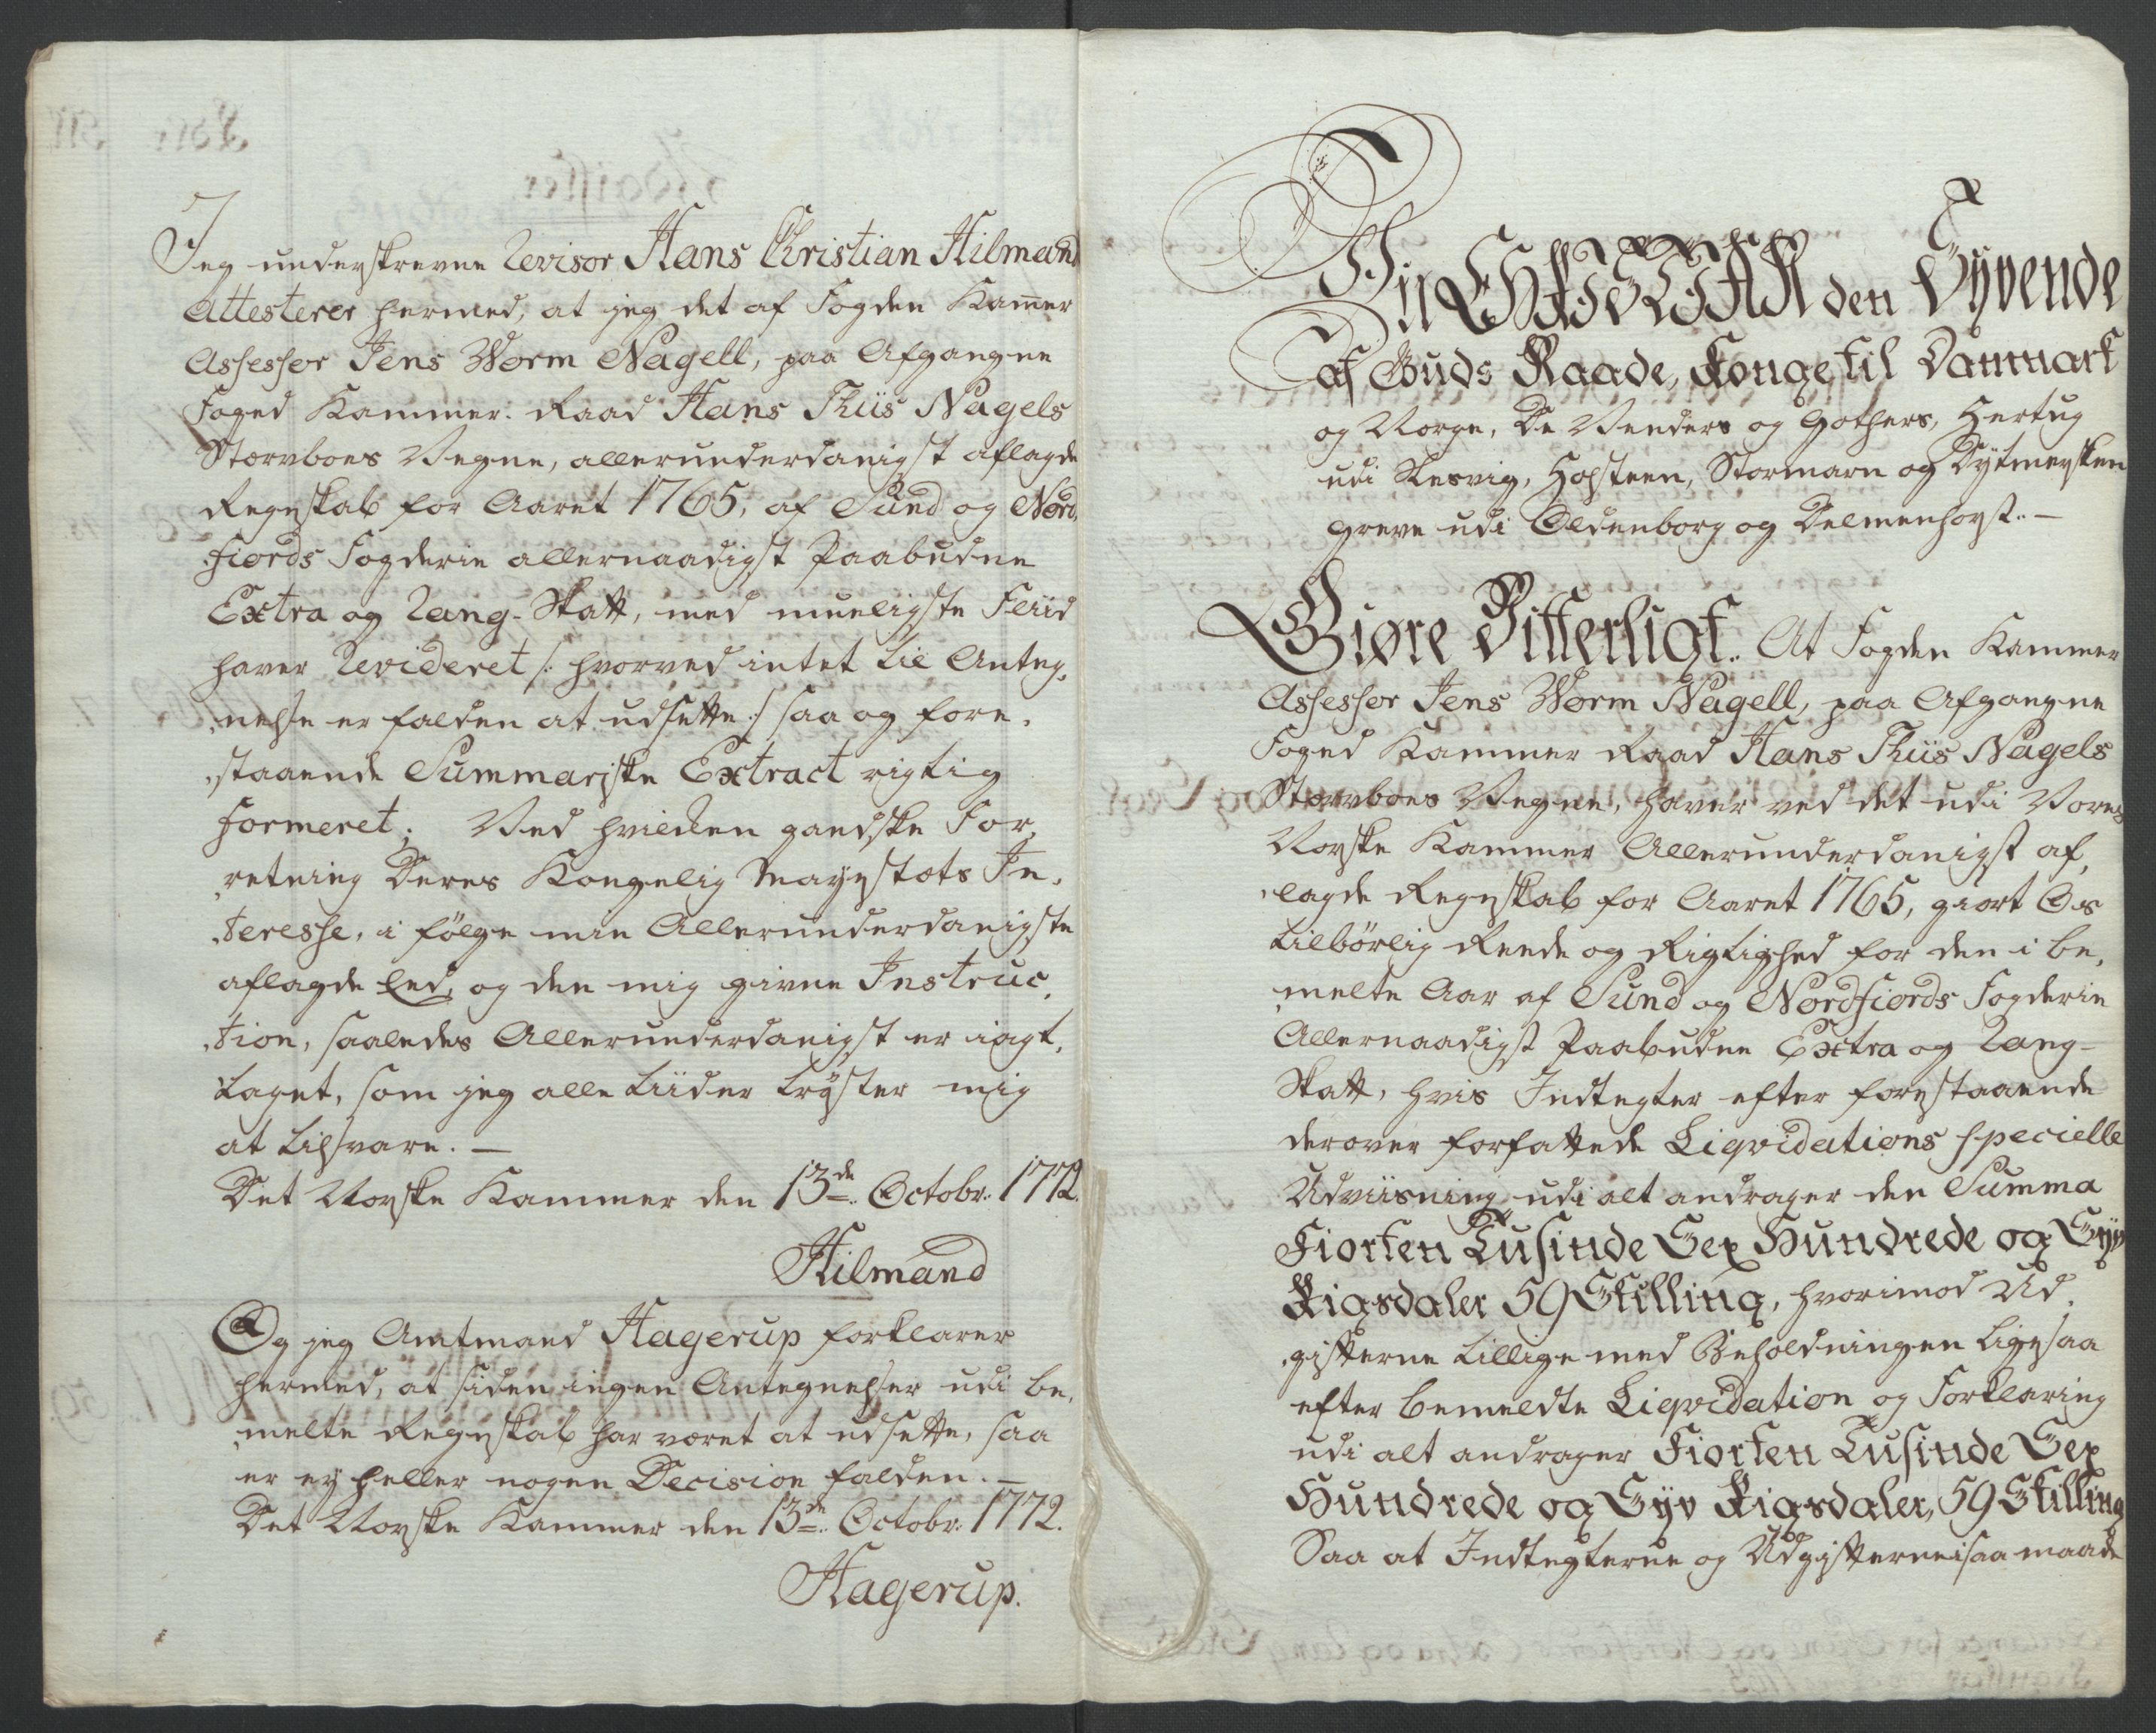 Jeg underskrevne Revisor Hans Christian Hilmand
Attesterer hermed, at jeg det af Fogden Kam̅er
Assessor Jens Worm Nagell, paa Afgangne
Foged Kammer-Raad Hans Thiis Nagels
Stervboes Vegne, allerunderdanigst aflagde
Regnskab for Aaret 1765, af Sund og Nord,
,fiords Fogderie allernaadigst Paabudne
Extra og Rang-Skatt, med mueligste Fliid
haver Revideret /: hvorved intet til Anteg,
,nelse er falden at udsette :/ saa og fore,
,staaende Summariske Extract rigtig
formeret; Ved hvilken gandske For,
,retning Deres Kongelig Mayestæts In,
,teresse, i følge min Allerunderdanigste
aflagde Eed, og den mig givne Instruc,
,tion, saaledes Allerunderdanigst er iagt,
,taget, som jeg alle tiider trøster mig
at tilsvare. —
Det Norske Kammer den 13de Octobr: 1772.
Hilmand
Og jeg Amtmand Hagerup forklarer
hermed, at siden ingen Antegnelser udi be,
,melte Regnskab har været at udsette, saa
er ey heller nogen Decision falden. —
Det Norske Kammer den 13de Octobr: 1772.
Hagerup.
Vii CHRISTIAN den Syvende
af Guds Naade, Konge til Danmark
og Norge, De Venders og Gothers, Hertug
udi Slesvig, Holsteen, Stormarn og Dytmersken
Greve udi Oldenborg og Delmenhorst. —
Giøre Vitterligt. At Fogden Kammer
Assessor Jens Worm Nagell, paa Afgangne
Foged Kammer Raad Hans Thiis Nagels
Stervboes Vegne, haver ved det udi Vores
Norske Kammer Allerunderdanigst af,
,lagde Regnskab for Aaret 1765, giort Os
tilbørlig Reede og Rigtighed for den i be,
,melte Aar af Sund og Nordfiords Fogderie
Allernaadigst Paabudne Extra og Rang-
Skatt, hvis Indtegter efter forestaaende
derover forfattede Liqvidations specielle
Udviisning udi alt andrager den Summa
Fiorten Tusinde Sex Hundrede og Syv
Rigsdaler 59 Skilling, hvorimod Ud,
,gifterne tillige med Beholdningen ligesaa
efter bemeldte Liqvidation og Forklaring
udi alt andrager Fiorten Tusinde Sex
Hundrede og Syv Rigsdaler, 59 Skilling
Saa at Indtegterne og Udgifterne i saa maade